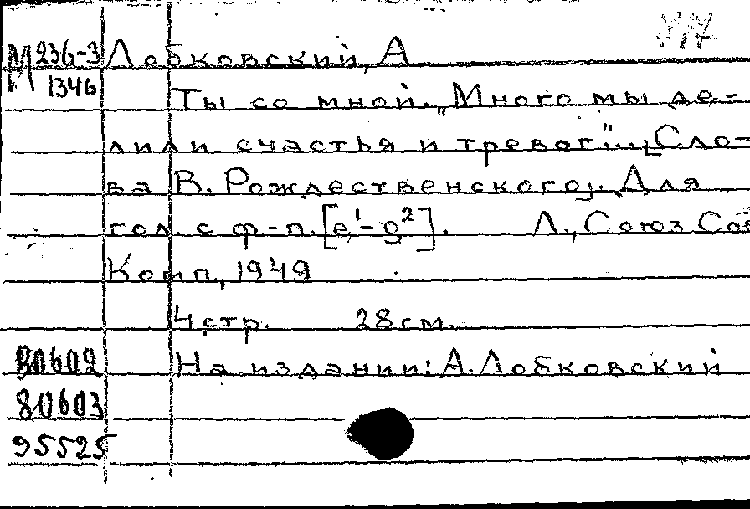 М 236-3 Лобковский, А
1346
Ты со мной. „Много мы де-
лили счастья и тревог"... [Сло-
ва В. Рождественского]. Для
гол. с ф-п. [e¹-g²]. Л., Союз Сов
Комп., 1949
4 стр. 28 см.
80602 На издании: А. Лобковский
80603
95525